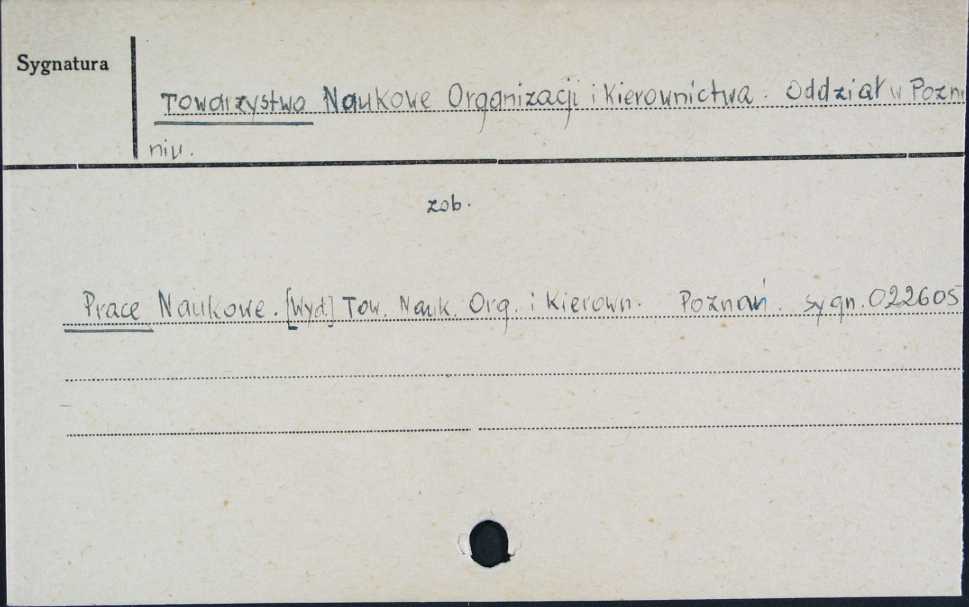 Sygnatura
Towarzystwo Naukowe Organizacji i Kierownictwa. Oddział w Pozna
niu.
zob.
Prace Naukowe. [Wyd.] Tow. Nauk. Org. i Kierown. Poznań. sygn. 022605